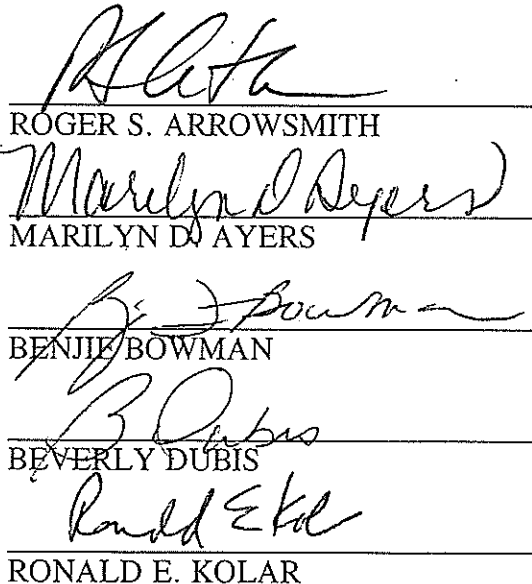 ROGER S. ARROWSMITH
Marilyn D Ayers
MARILYN D. AYERS
Bowman
BENJIE BOWMAN
B Dubis
BEVERLY DUBIS
Ronald E Kol
RONALD E. KOLAR